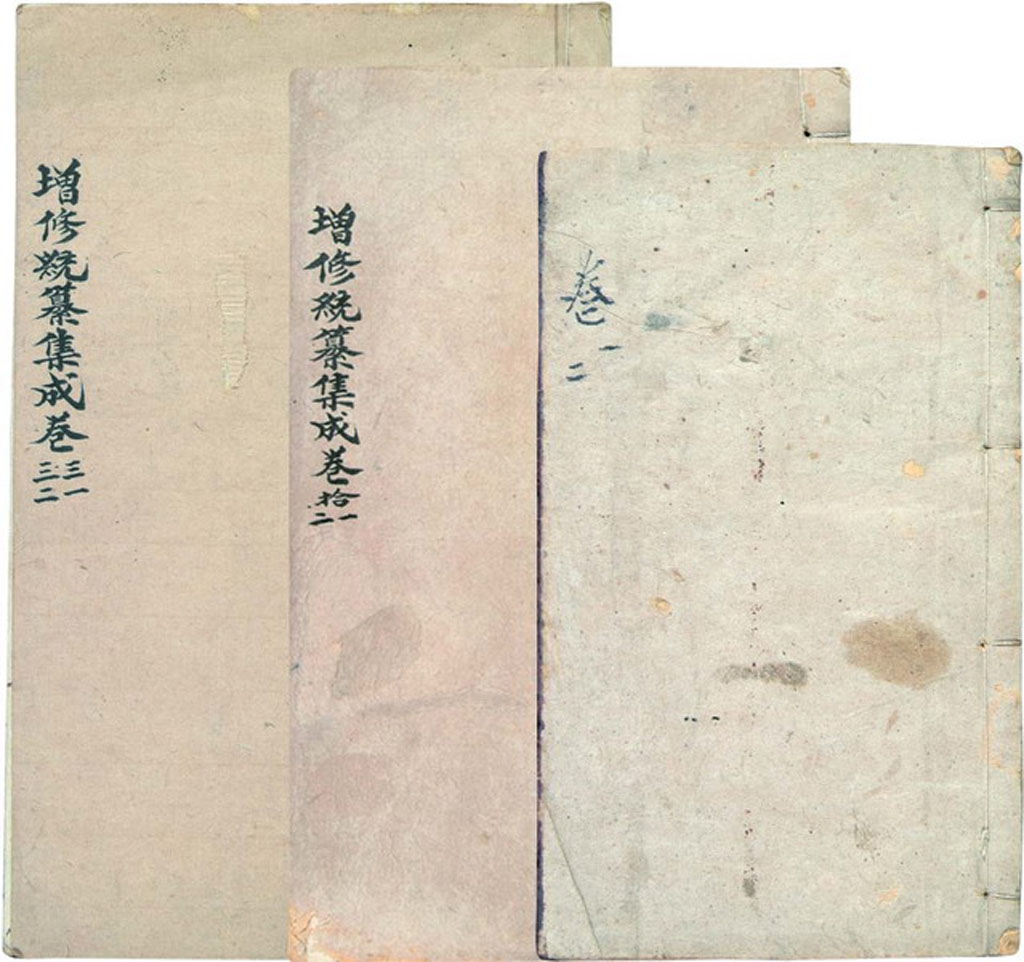 增修統纂集成卷
三一
三二
增修統纂集成卷
拾
一
二
卷
一
二